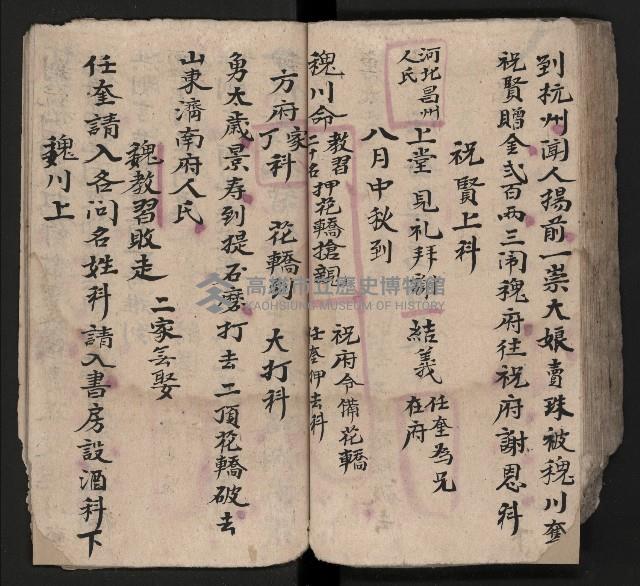 到杭州闻人揚前一崇大娘賣珠被魏川奎
祝賢贈金弍百両三闹魏府往祝府謝恩科
祝賢上科
河北昌州
人氏
上堂見礼拜謝 結義 任奎為兄
在府
八月中秋到
魏川命 教習
二十名 押花轎搶親 祝府令備花轎
任奎伸去科
方府家
丁科 花轎 大打科
勇太歲景寿到提石磨打去二頂花轎破去
山東濟南府人氏
魏教習敗走 二家娶
任奎請入各问名姓科請入書房設酒科下
魏川上
高雄市立歷史博物館
KAOHSIUNG MUSEUM OF HISTORY